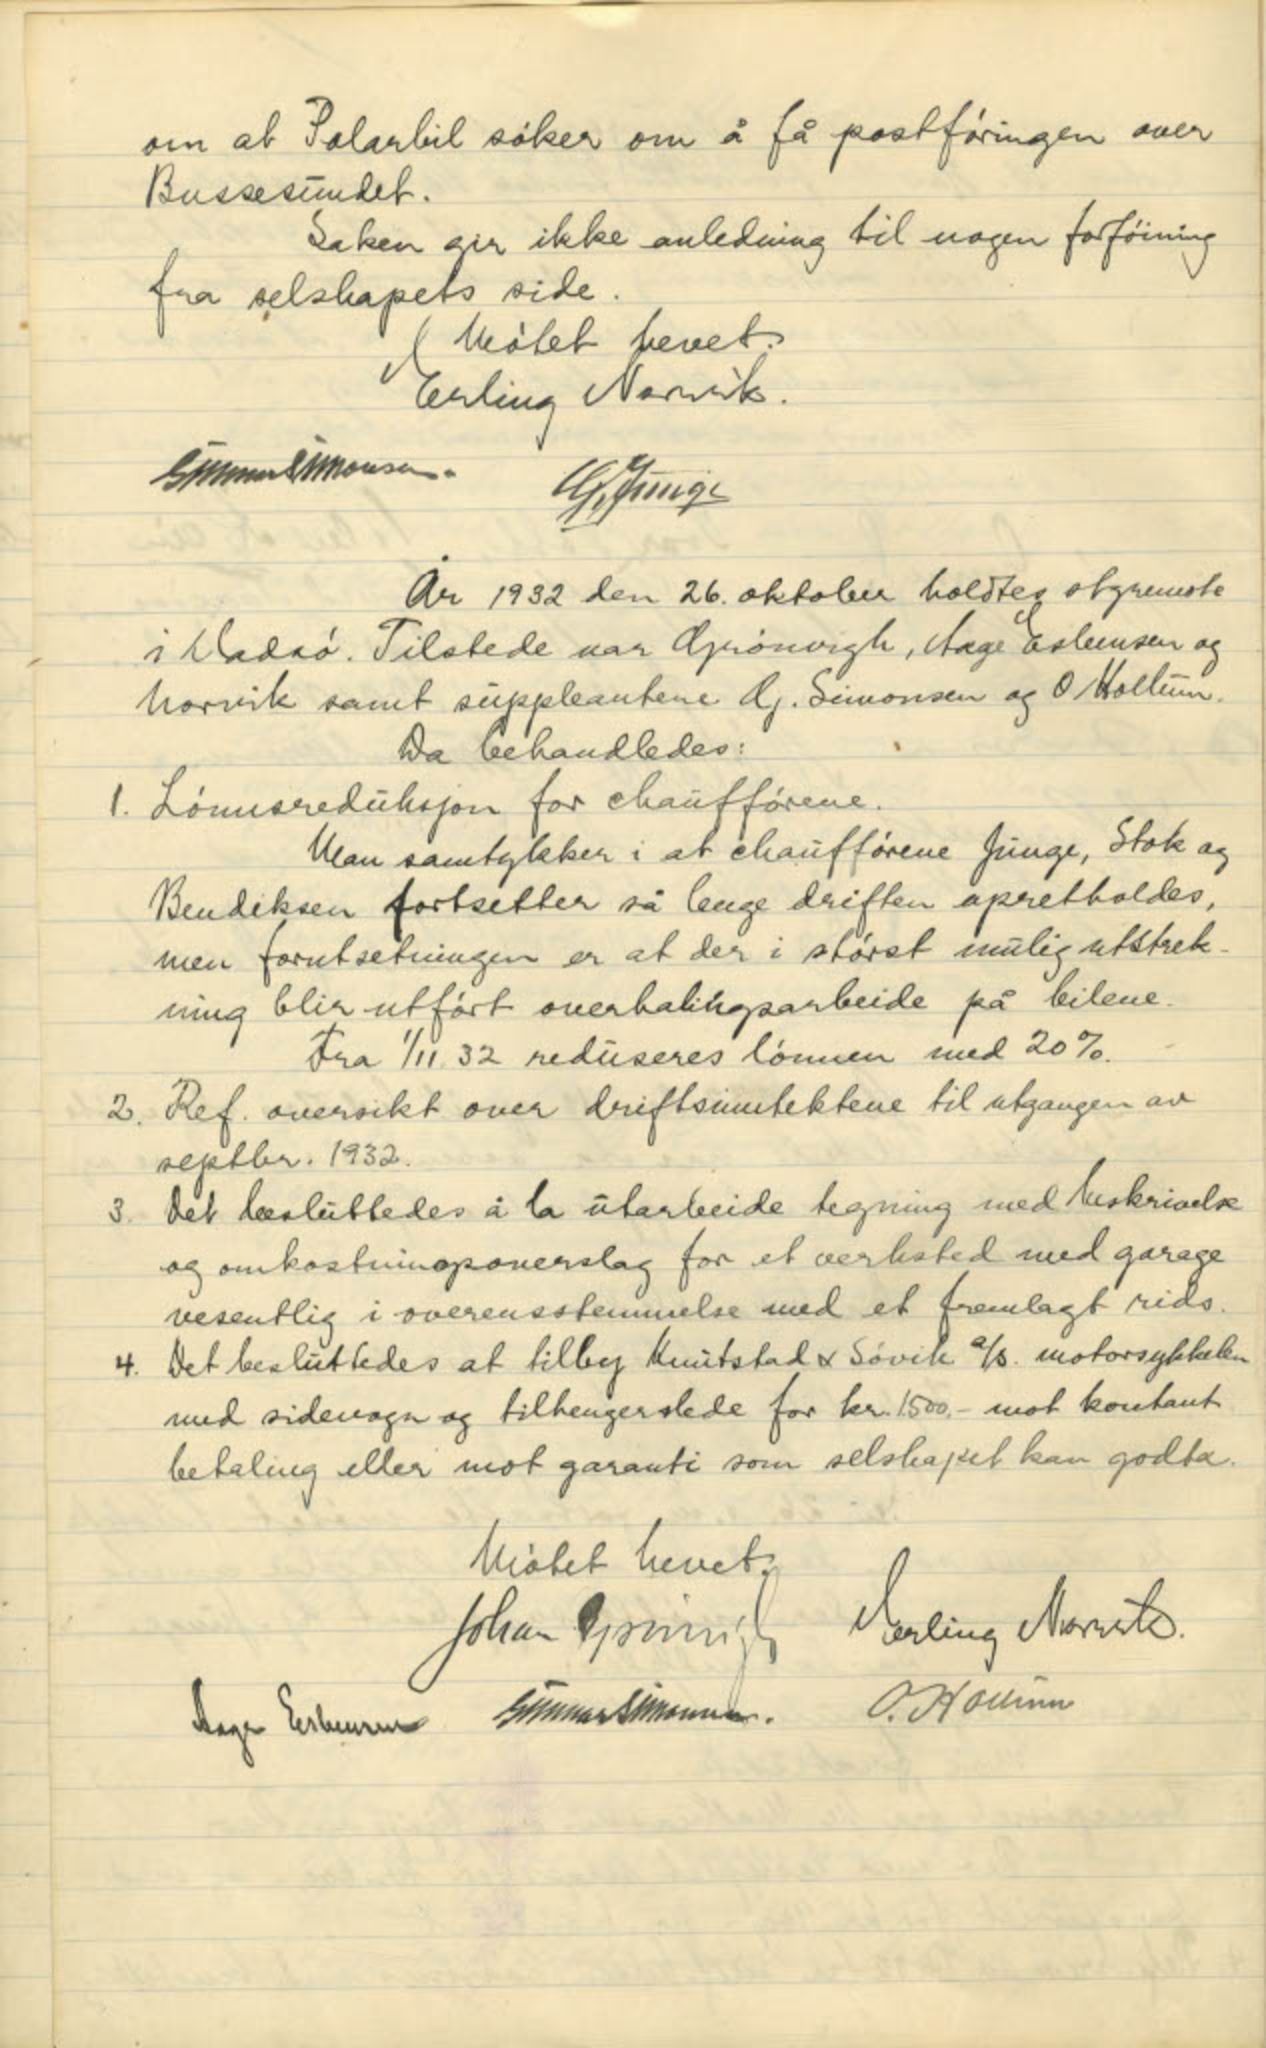 om at Polarbil søker om å få postføringen over
Bussesundet.
Saken gir ikke anledning til nogen forføining
fra selskapets side.
Møtet hevet.
Erling Norvik.
Gunnar Simonsen. G. Junge
År 1932 den 26. oktober holdtes styremøte
i Vadsø. Tilstede var Grønvigh, Aage Esbensen og
Norvik samt suppleantene G. Simonsen og O Hollum.
Da behandledes:
1. Lønnsreduksjon for chaufførene.
Man samtykker i at chaufførene Junge, Stok og
Bendiksen fortsetter så lenge driften opretholdes,
men forutsetningen er at der i størst mulig utstrek-
ning blir utført overhalingsarbeide på bilene.
Fra 1/11.32 reduseres lønnen med 20%.
2. Ref. oversikt over driftsinntektene til utgangen av
septbr. 1932.
3. Det besluttedes å la utarbeide tegning med beskrivelse
og omkostningsoverslag for et verksted med garage
vesentlig i overensstemmelse med et fremlagt rids.
4. Det besluttedes at tilby Knutstad & Søvik a/s. motorsykkelen
med sidevogn og tilhengerslede for kr. 1500,- mot kontant
betaling eller mot garanti som selskapet kan godta.
Møtet hevet.
Johan Grønvigh Erling Norvik.
Aage Esbensen Gunnar Simonsen. O. Hollum